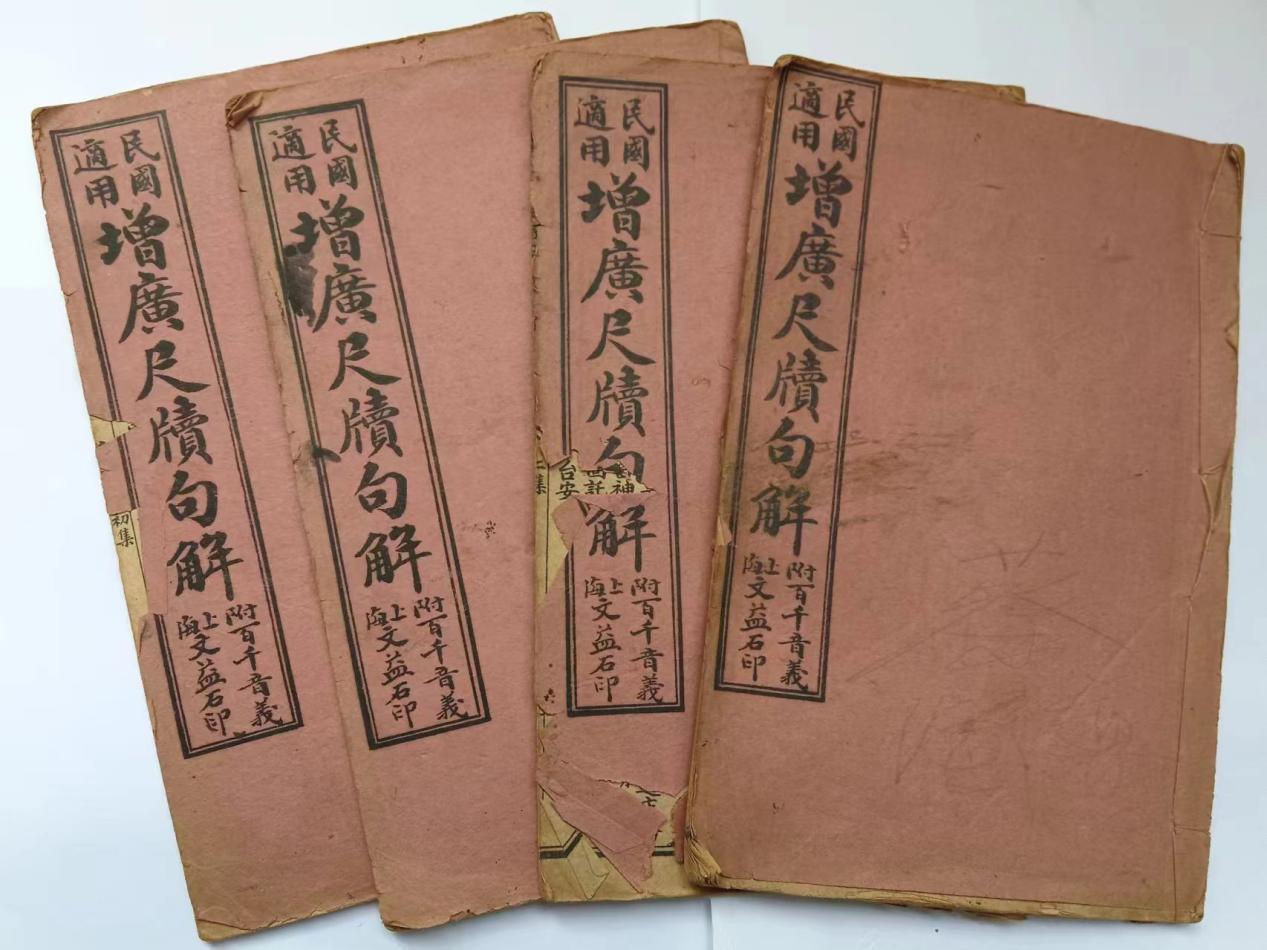 民國
適用
增廣尺牘句解
附百千音義
上海文益石印
初集
民國
適用
增廣尺牘句解
附百千音義
上海文益石印
民國
適用
增廣尺牘句解
神
託
台安
集
附百千音義
上海文益石印
民國
適用
增廣尺牘句解
附百千音義
上海文益石印